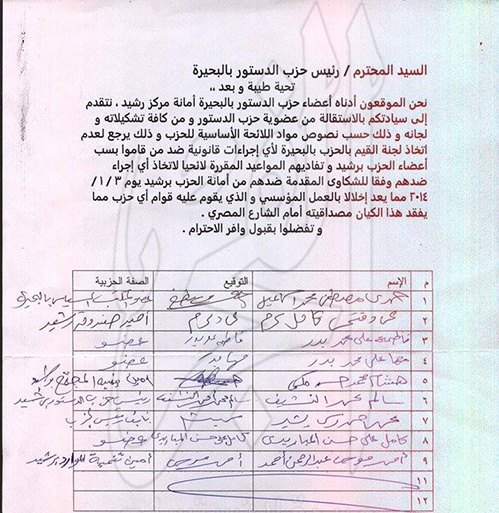 السيد المحترم / رئيس حزب الدستور بالبحيرة
تحية طيبة و بعد ،،
نحن الموقعون أدناه أعضاء حزب الدستور بالبحيرة أمانة مركز رشيد ، نتقدم
إلى سيادتكم بالاستقالة من عضوية حزب الدستور و من كافة تشكيلاته و
لجانه و ذلك حسب نصوص مواد اللائحة الأساسية للحزب و ذلك يرجع لعدم
اتخاذ لجنة القيم بالحزب بالبحيرة لأي إجراءات قانونية ضد من قاموا بسب
أعضاء الحزب برشيد و تفاديهم المواعيد المقررة لائحيا لاتخاذ أي إجراء
ضدهم وفقا للشكاوى المقدمة ضدهم من أمانة الحزب برشيد يوم ٣ / ١ /
٢٠١٤ مما يعد إخلالا بالعمل المؤسسي و الذي يقوم عليه قوام أي حزب مما
يفقد هذا الكيان مصداقيته أمام الشارع المصري .
و تفضلوا بقبول وافر الاحترام .
م الإسم التوقيع الصفة الحزبية
١ حمدى مصطفى محمد اسماعيل
٢ كامل كرم أمين صندوق رشيد
٣ فاطمه على محمد بدر عضو
٤ مها على محمد بدر مها بدر عضو
٥ هشام محمد حسن
٦ سالم محمد الشريف
٧
٨ كامل على حسن عضو
٩ أحمد موسى عبدالرحمن أحمد أحمد موسى أمين تنمية الموارد برشيد
١١
١٢